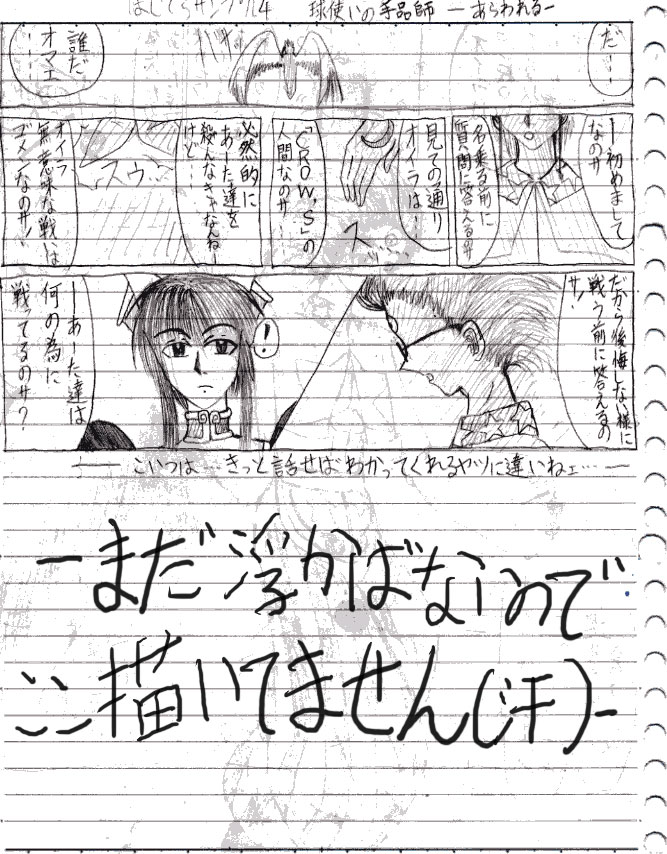 はじてらサンプル4 球使いの手品師 ーあらわれるー
だ…
誰だ
オマエ
……
ー初めまして
なのサ
名乗る前に
質問に答えるのサ
見ての通り
オイラは…
ス
「CROW,S」の
人間なのサ…
必然的に
あーた達を
殺んなきゃなんねー
けど…
スゥ…
オイラ
無意味な戦いは
ゴメンなのサ！
だから後悔しない様に
戦う前に答えるの
サ！
！
ーあーた達は
何の為に
戦ってるのサ？
ーこいつは…きっと話せばわかってくれるヤツに違いねェ…ー
ーまだ浮かばないので
ここ描いてません(汗)ー